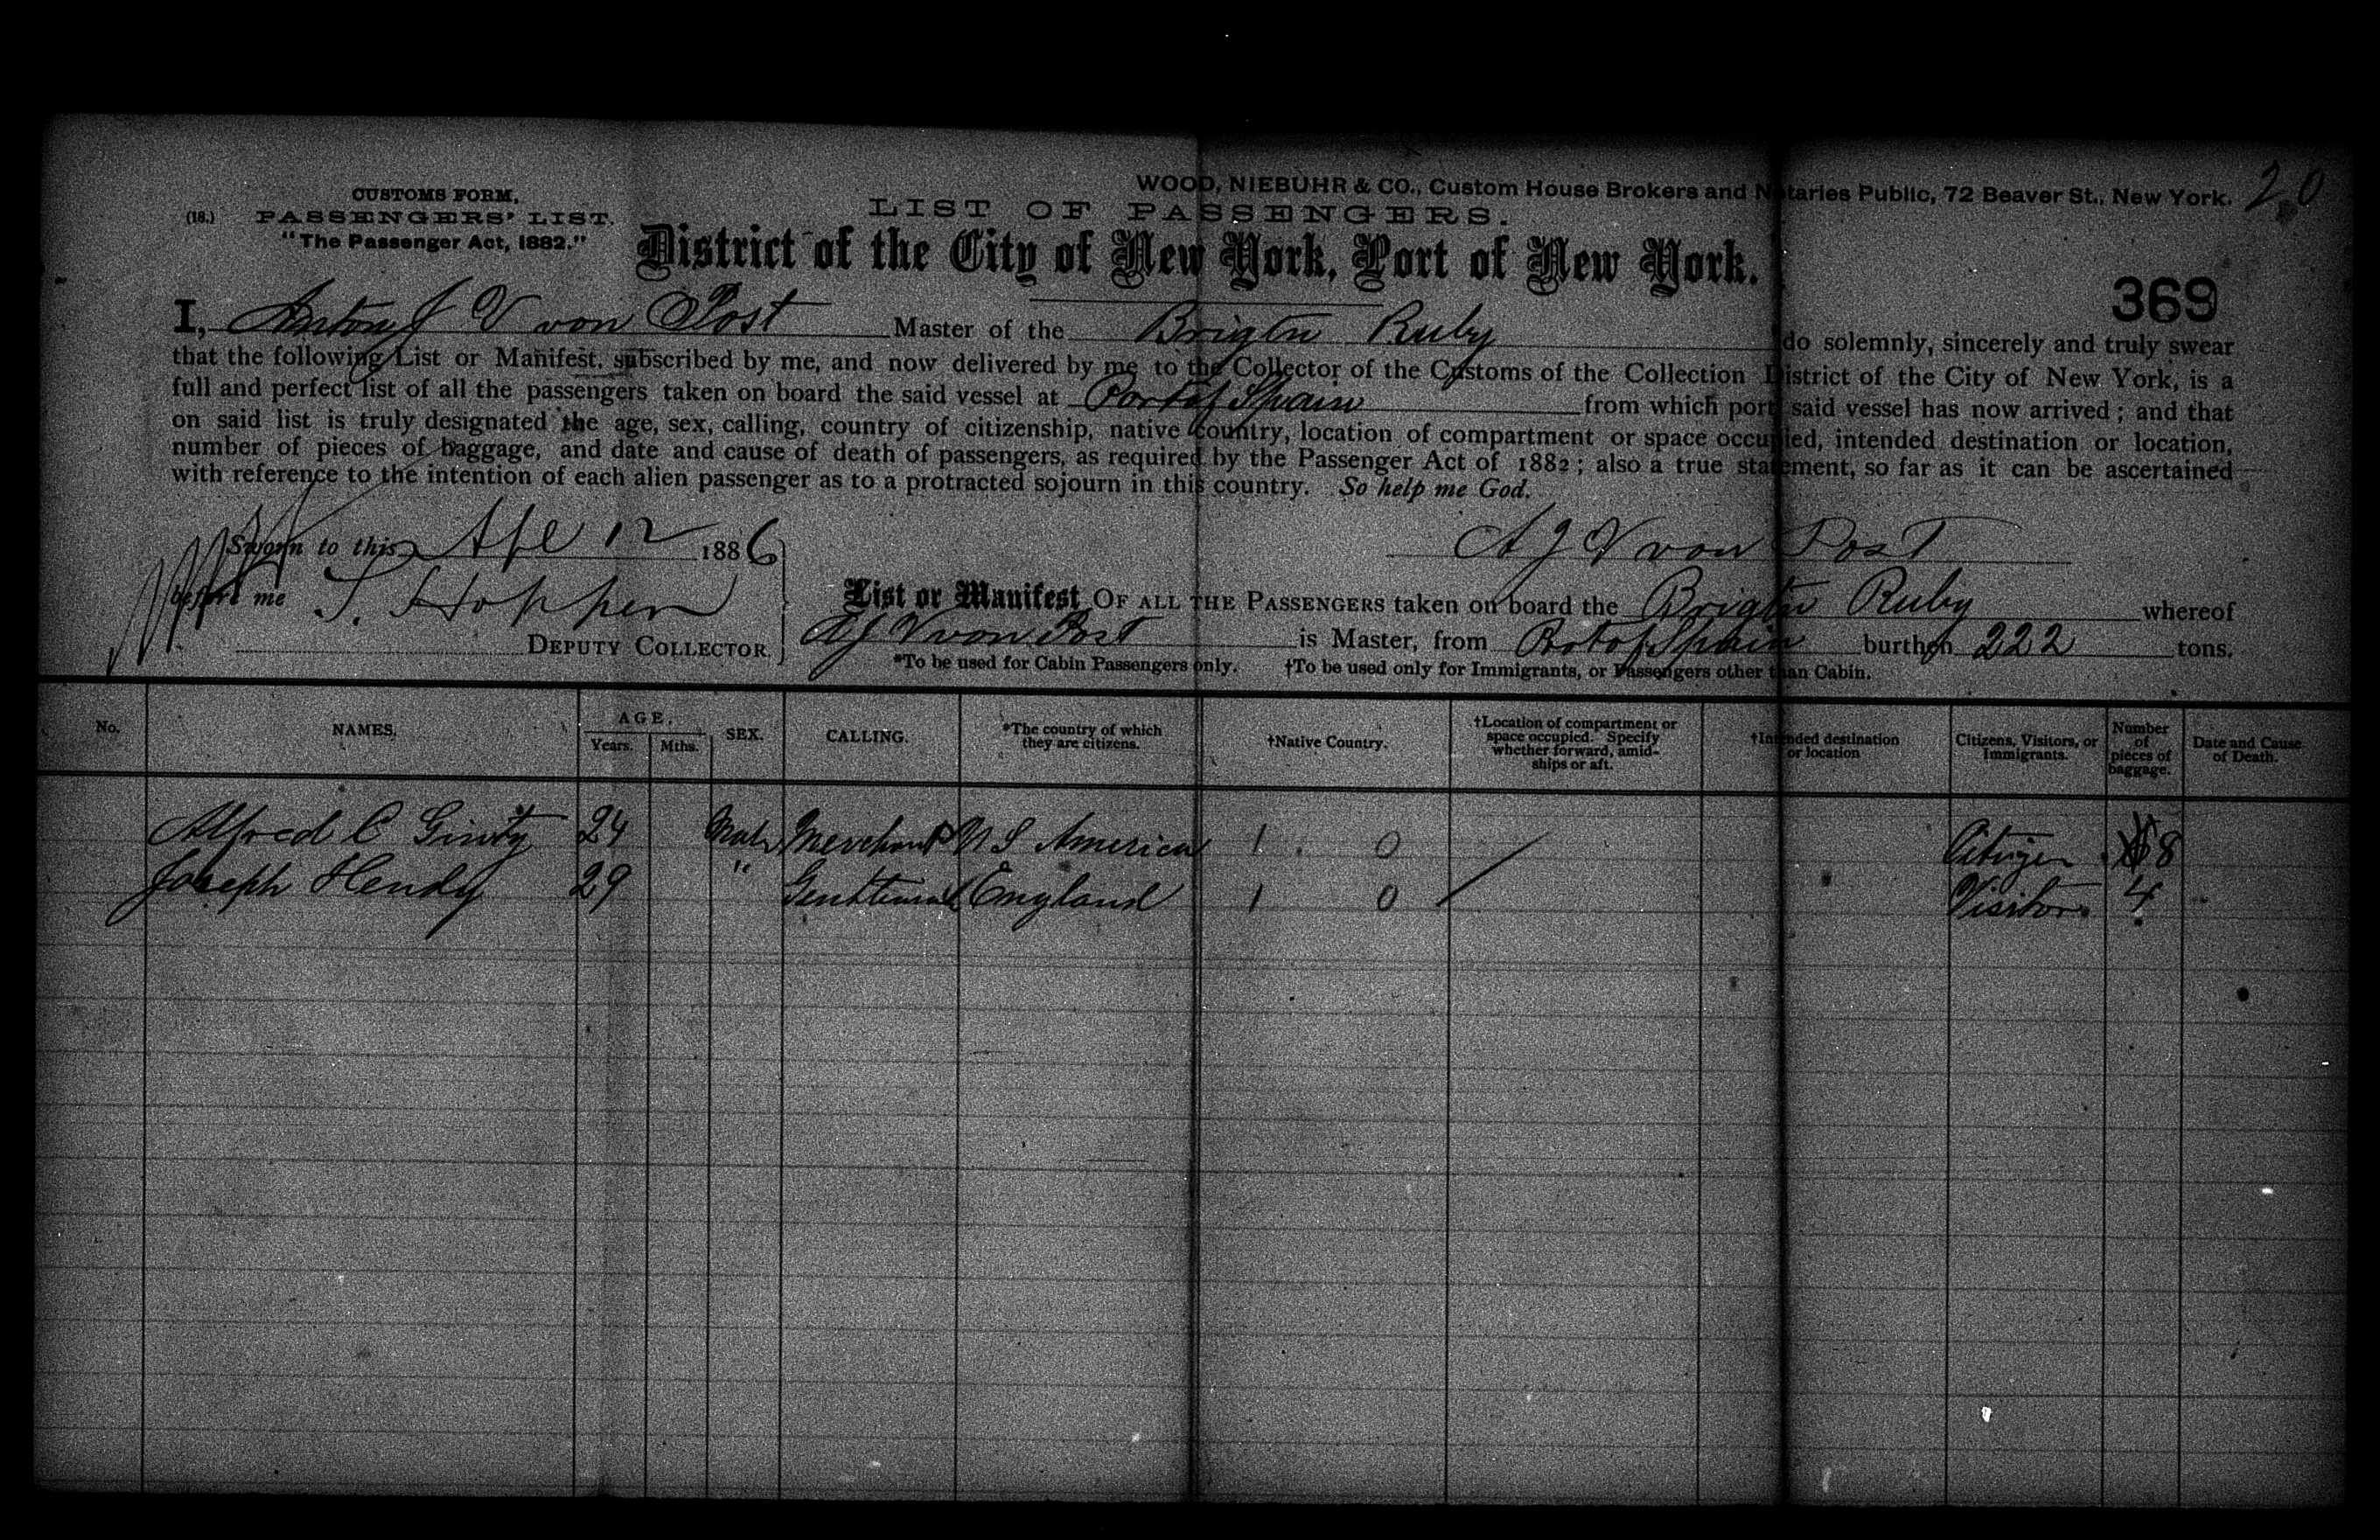 WOOD, NIEBUHR & CO., Custom House Brokers and Notaries Public, 72 Beaver St., New York. 20
CUSTOMS FORM,
(18.) PASSENGERS' LIST.
"The Passenger Act, 1882."
LIST OF PASSENGERS.
District of the City of New York, Port of New York.
369
I, Antony J V von Post Master of the Brigtn Ruby do solemnly, sincerely and truly swear
that the following List or Manifest, subscribed by me, and now delivered by me to the Collector of the Customs of the Collection District of the City of New York, is a
full and perfect list of all the passengers taken on board the said vessel at Port of Spain from which port said vessel has now arrived; and that
on said list is truly designated the age, sex, calling, country of citizenship, native country, location of compartment or space occupied, intended destination or location,
number of pieces of baggage, and date and cause of death of passengers, as required by the Passenger Act of 1882; also a true statement, so far as it can be ascertained
with reference to the intention of each alien passenger as to a protracted sojourn in this country. So help me God.
Sworn to this Apl 12 1886
A J V von Post
before me S. Hopper
DEPUTY COLLECTOR.
List or Manifest OF ALL THE PASSENGERS taken on board the Brigtn Ruby whereof
A J V von Post is Master, from Port of Spain burthen 222 tons.
*To be used for Cabin Passengers only. †To be used only for Immigrants, or Passengers other than Cabin.
No. NAMES. AGE. Years. Mths. SEX. CALLING. *The country of which they are citizens. †Native Country. †Location of compartment or space occupied. Specify whether forward, amidships or aft. †Intended destination or location Citizens, Visitors, or Immigrants. Number of pieces of baggage. Date and Cause of Death.
Alfred C 24 Male Merchant U S America 1 0 Citizen 8
Joseph Hendy 29 " Gentleman England 1 0 Visitor 4